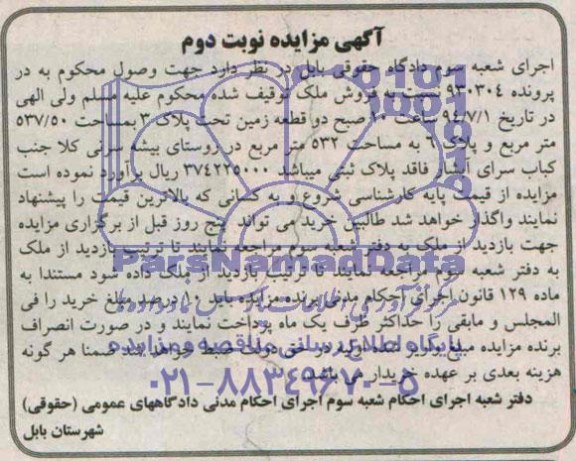 آگهی مزایده نوبت دوم
اجرای شعبه سوم دادگاه حقوقی بابل در نظر دارد جهت وصول محکوم به در
پرونده ۹۳۰۳۰۴ نسبت به فروش ملک توقیف شده محکوم علیه مسلم ولی الهی
در تاریخ ۹۴/۷/۱ ساعت ۱۰ صبح دو قطعه زمین تحت پلاک ۳ بمساحت ۵۳۷/۵۰
متر مربع و پلاک ۶ به مساحت ۵۳۲ متر مربع در روستای بیشه سرنی کلا جنب
کباب سرای آبشار فاقد پلاک ثبتی میباشد ۳۷۴۲۲۵۰۰۰ ریال برآورد نموده است
مزایده از قیمت پایه کارشناسی شروع و به کسانی که بالاترین قیمت را پیشنهاد
نمایند واگذار خواهد شد طالبین خرید می تواند پنج روز قبل از برگزاری مزایده
جهت بازدید از ملک به دفتر شعبه سوم مراجعه نمایند تا ترتیب بازدید از ملک
به دفتر شعبه سوم مراجعه نمایند تا ترتیب بازدید از ملک داده شود مستندا به
ماده ۱۲۹ قانون اجرای احکام مدنی برنده مزایده باید ۱۰ درصد مبلغ خرید را فی
المجلس و مابقی را حداکثر ظرف یک ماه پرداخت نمایند و در صورت انصراف
برنده مزایده مبلغ واریز شده اولیه در حق دولت ضبط خواهد شد ضمنا هر گونه
هزینه بعدی بر عهده خریدار می باشد.
دفتر شعبه اجرای احکام شعبه سوم اجرای احکام مدنی دادگاههای عمومی (حقوقی)
شهرستان بابل
ParsNamadData
پایگاه اطلاع رسانی مناقصه و مزایده
۰۲۱-۸۸۳۴۹۶۷۰-۵